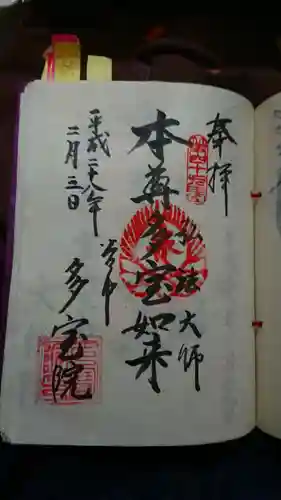 奉拝
弘法大師
本尊多宝如来
谷中
多宝院
平成二十八年
二月三日